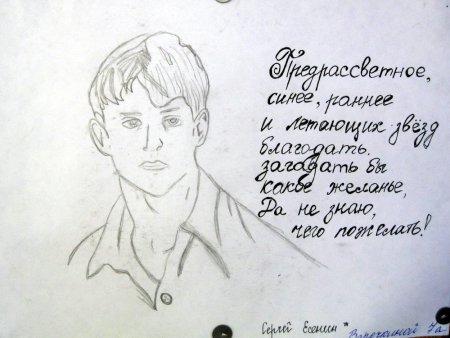 Предрассветное,
синее, раннее
и летающих звёзд
благодать.
загадать бы
какое желанье,
Да не знаю,
чего пожелать!
Сергей Есенин *
7а